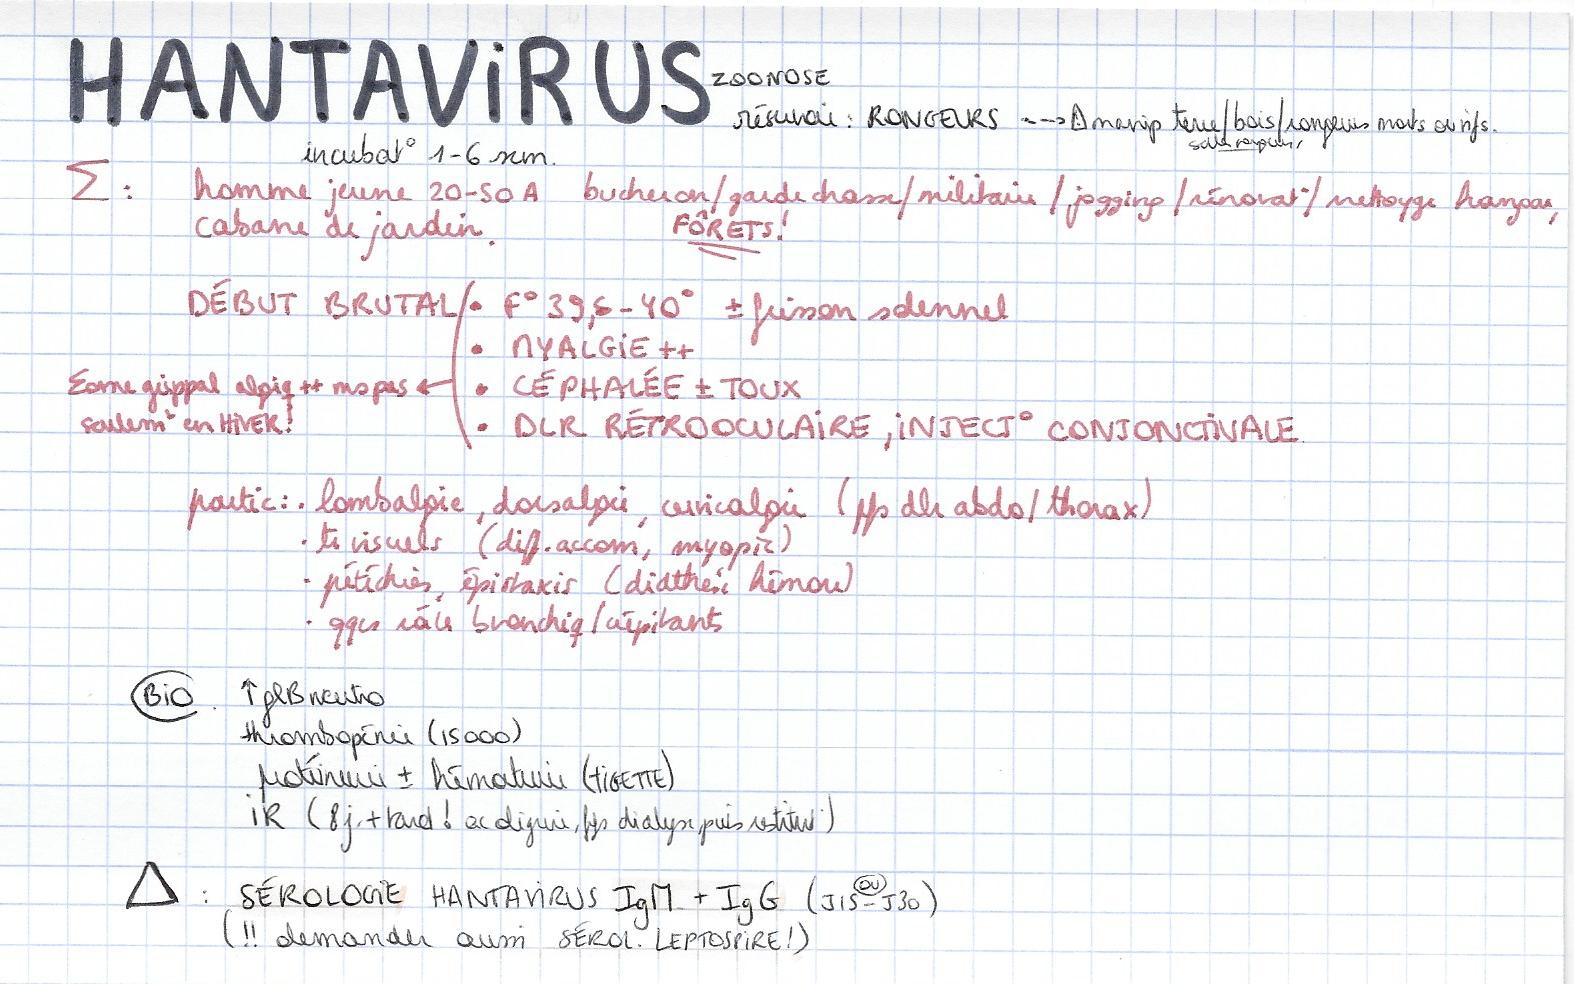 HANTAVIRUS ZOONOSE
réservoir : RONGEURS ---> Δ manip terre/bois/rongeurs morts ou vifs.
incubat° 1-6 sem.
Σ : homme jeune 20-50 A bucheron/garde chasse/militaire/jogging/rénovat°/nettoyge hangar,
cabane de jardin. FÔRETS!
DÉBUT BRUTAL • F° 39,5-40° ± frisson solennel
• MYALGIE ++
Σome grippal algiq ++ ms pas ← • CÉPHALÉE ± TOUX
seulemt en HIVER! • DLR RÉTROOCULAIRE, INJECT° CONJONCTIVALE.
partic: . lombalgie, dorsalgie, cervicalgie (pfs dlr abdo/thorax)
. tr visuels (diff. accom, myopie)
. pétéchies, épistaxis (diathèse hémorr)
. qqes râle bronchiq/crépitants
BIO. ↑ glB neutro
thrombopénie (15000)
protéinurie ± hématurie (TIGETTE)
IR (8j. + tard! ac oligurie, pfs dialyse, puis restitut°)
Δ : SÉROLOGIE HANTAVIRUS IgM + IgG (J15 OU J30)
(!! demander aussi SÉROL. LEPTOSPIRE!)